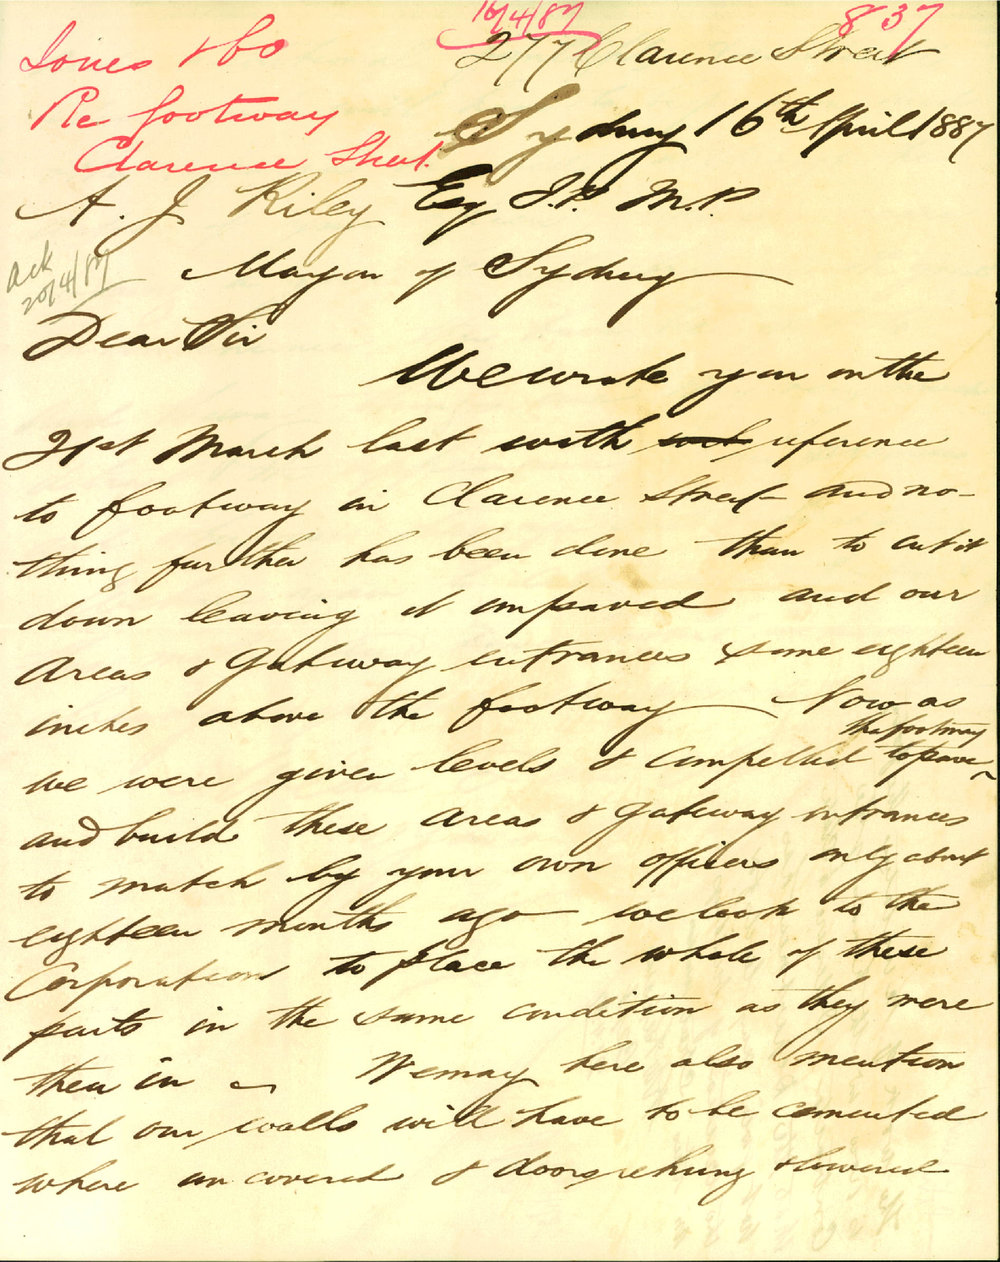 16/4/87
837
Jones & Co
Re footway
Clarence Street
277 Clarence Street
Sydney 16th April 1887
A. J. Riley Esq J.P. M.P.
Ack
20/4/87
Mayor of Sydney
Dear Sir
We wrote you on the
21st March last with reference
to footway in Clarence Street and no-
thing further has been done than to cut it
down leaving it unpaved and our
Areas & Gateway entrances some eighteen
inches above the footway Now as
we were given levels & compelled to pave the footway
and build these Areas & Gateway entrances
to match by your own officers only about
eighteen months ago we look to the
Corporation to place the whole of these
parts in the same condition as they were
then in We may here also mention
that our walls will have to be cemented
where uncovered & doors rehung & lowered